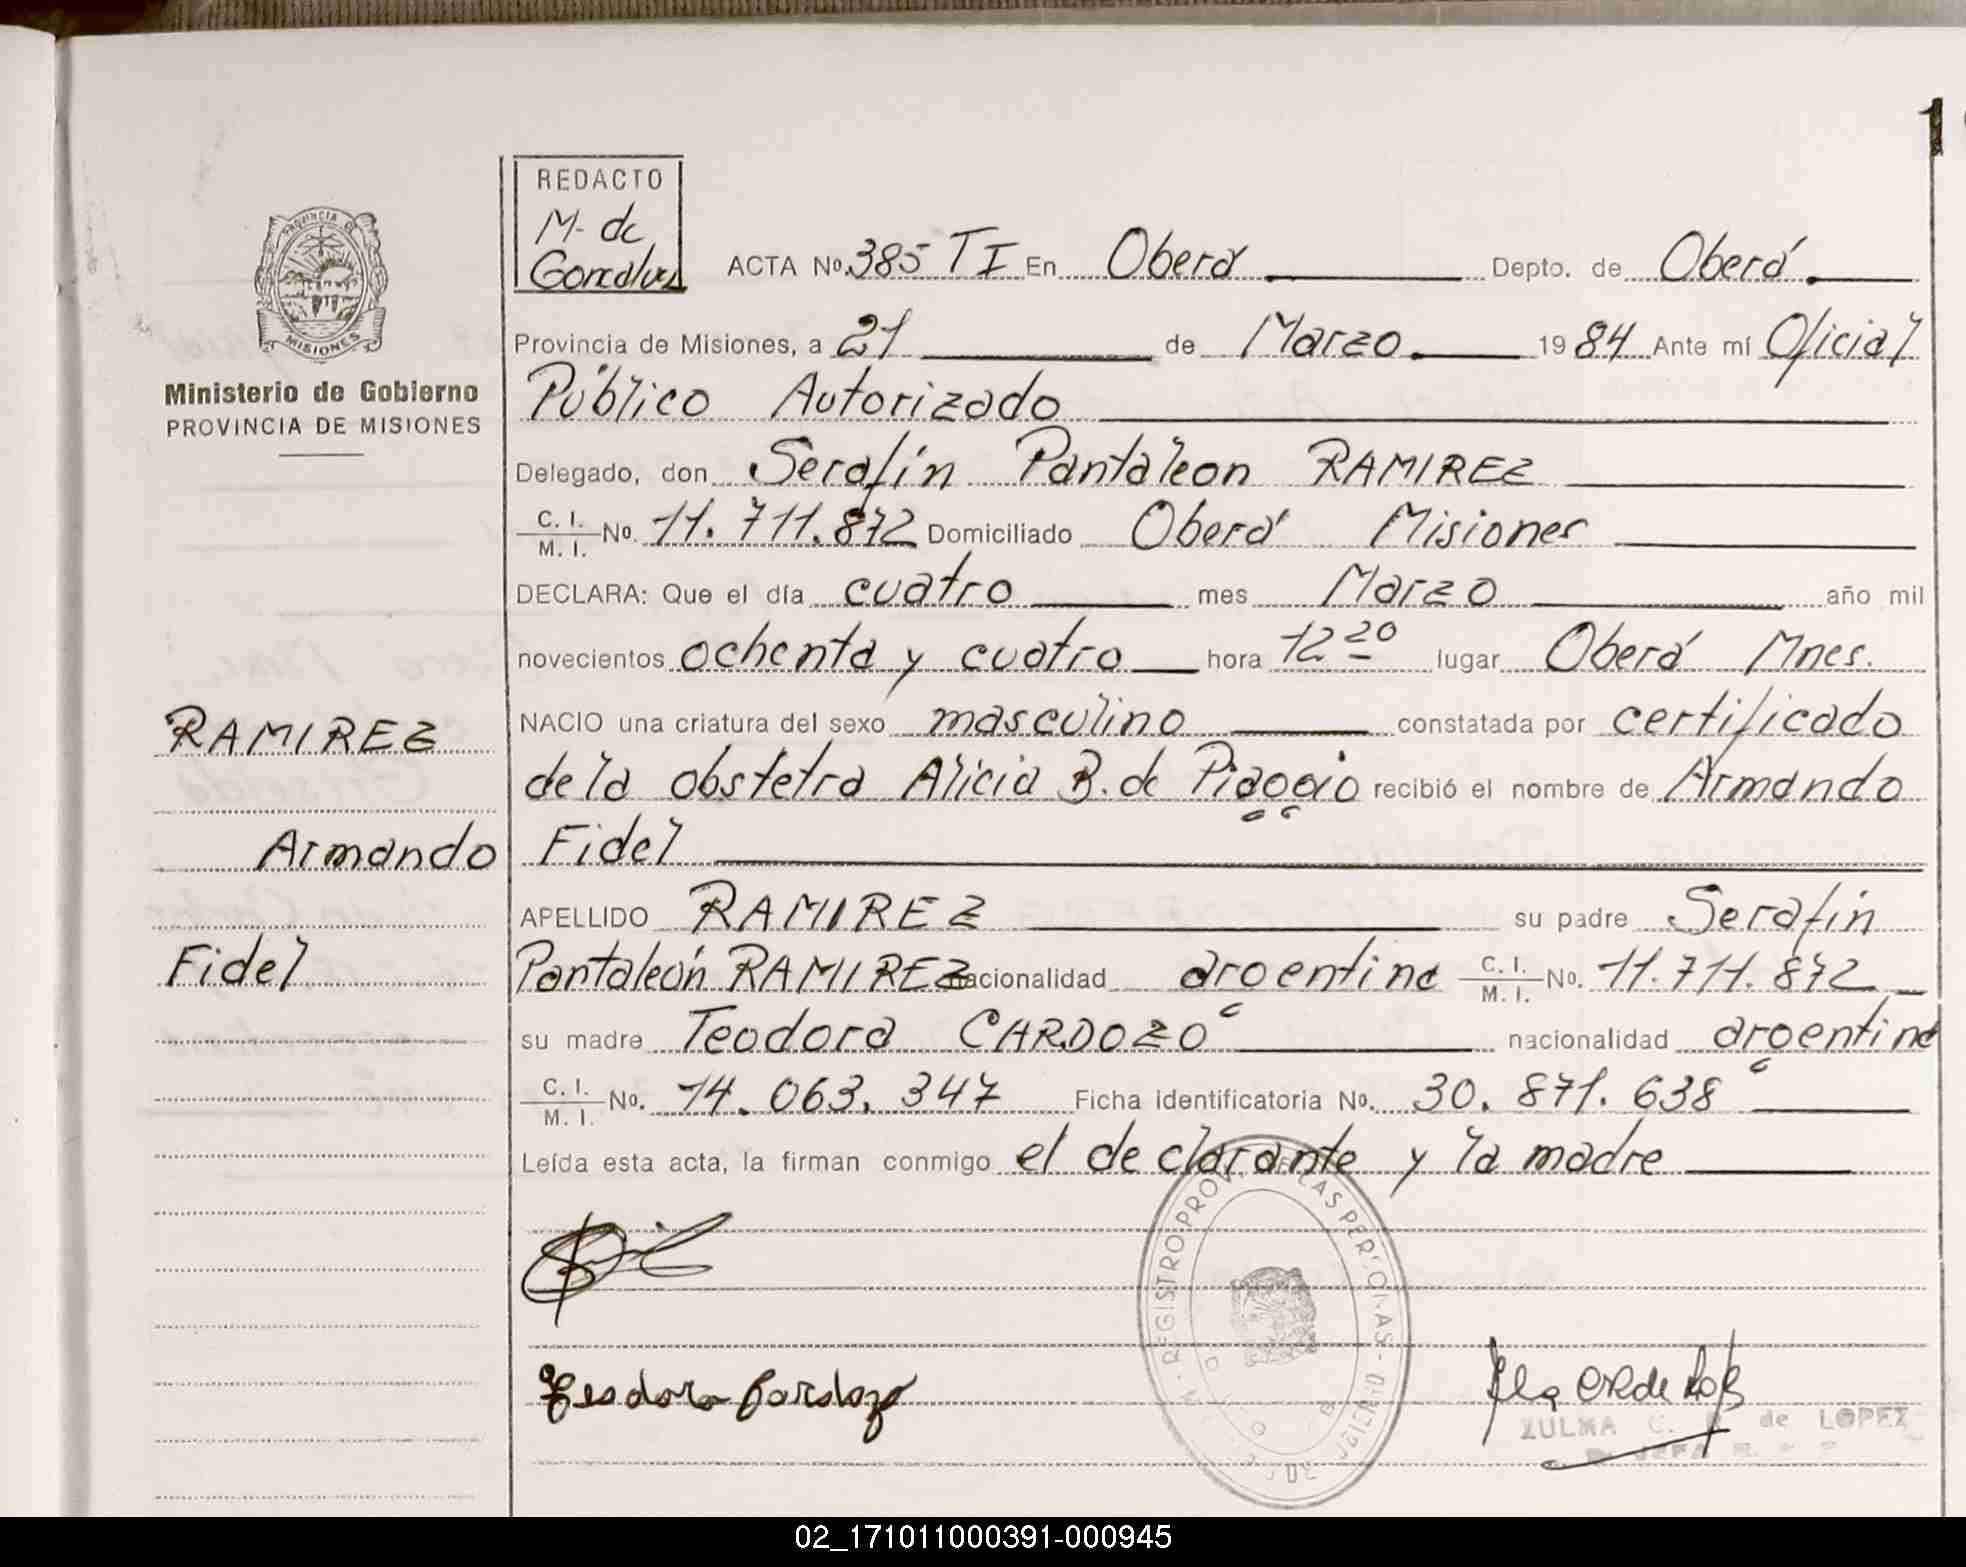 REDACTO
M. de
Goncalves
ACTA No. 385 TI En Oberá Depto. de Oberá.
Provincia de Misiones, a 21 de Marzo 1984 Ante mí Oficial
Público Autorizado
Delegado, don Serafín Pantaleon RAMIREZ
C. I. M. I. No. 11.711.872 Domiciliado Oberá Misiones
DECLARA: Que el día cuatro mes Marzo año mil
novecientos ochenta y cuatro hora 12 20 lugar Oberá Mnes.
NACIO una criatura del sexo masculino constatada por certificado
de la obstetra Alicia B. de Piaggio recibió el nombre de Armando
Fidel
APELLIDO RAMIREZ su padre Serafín
Pantaleón RAMIREZ nacionalidad argentina C. I. M. I. No. 11.711.872
su madre Teodora CARDOZO nacionalidad argentina
C. I. M. I. No. 14.063.347 Ficha identificatoria No. 30.871.638
Leída esta acta, la firman conmigo el declarante y la madre
Teodora Cardozo
ZULMA C. de LOPEZ
JEFA
REGISTRO PROV. DE LAS PERSONAS
PROVINCIA DE
MISIONES
Ministerio de Gobierno
PROVINCIA DE MISIONES
RAMIREZ
Armando
Fidel
1
02_171011000391-000945